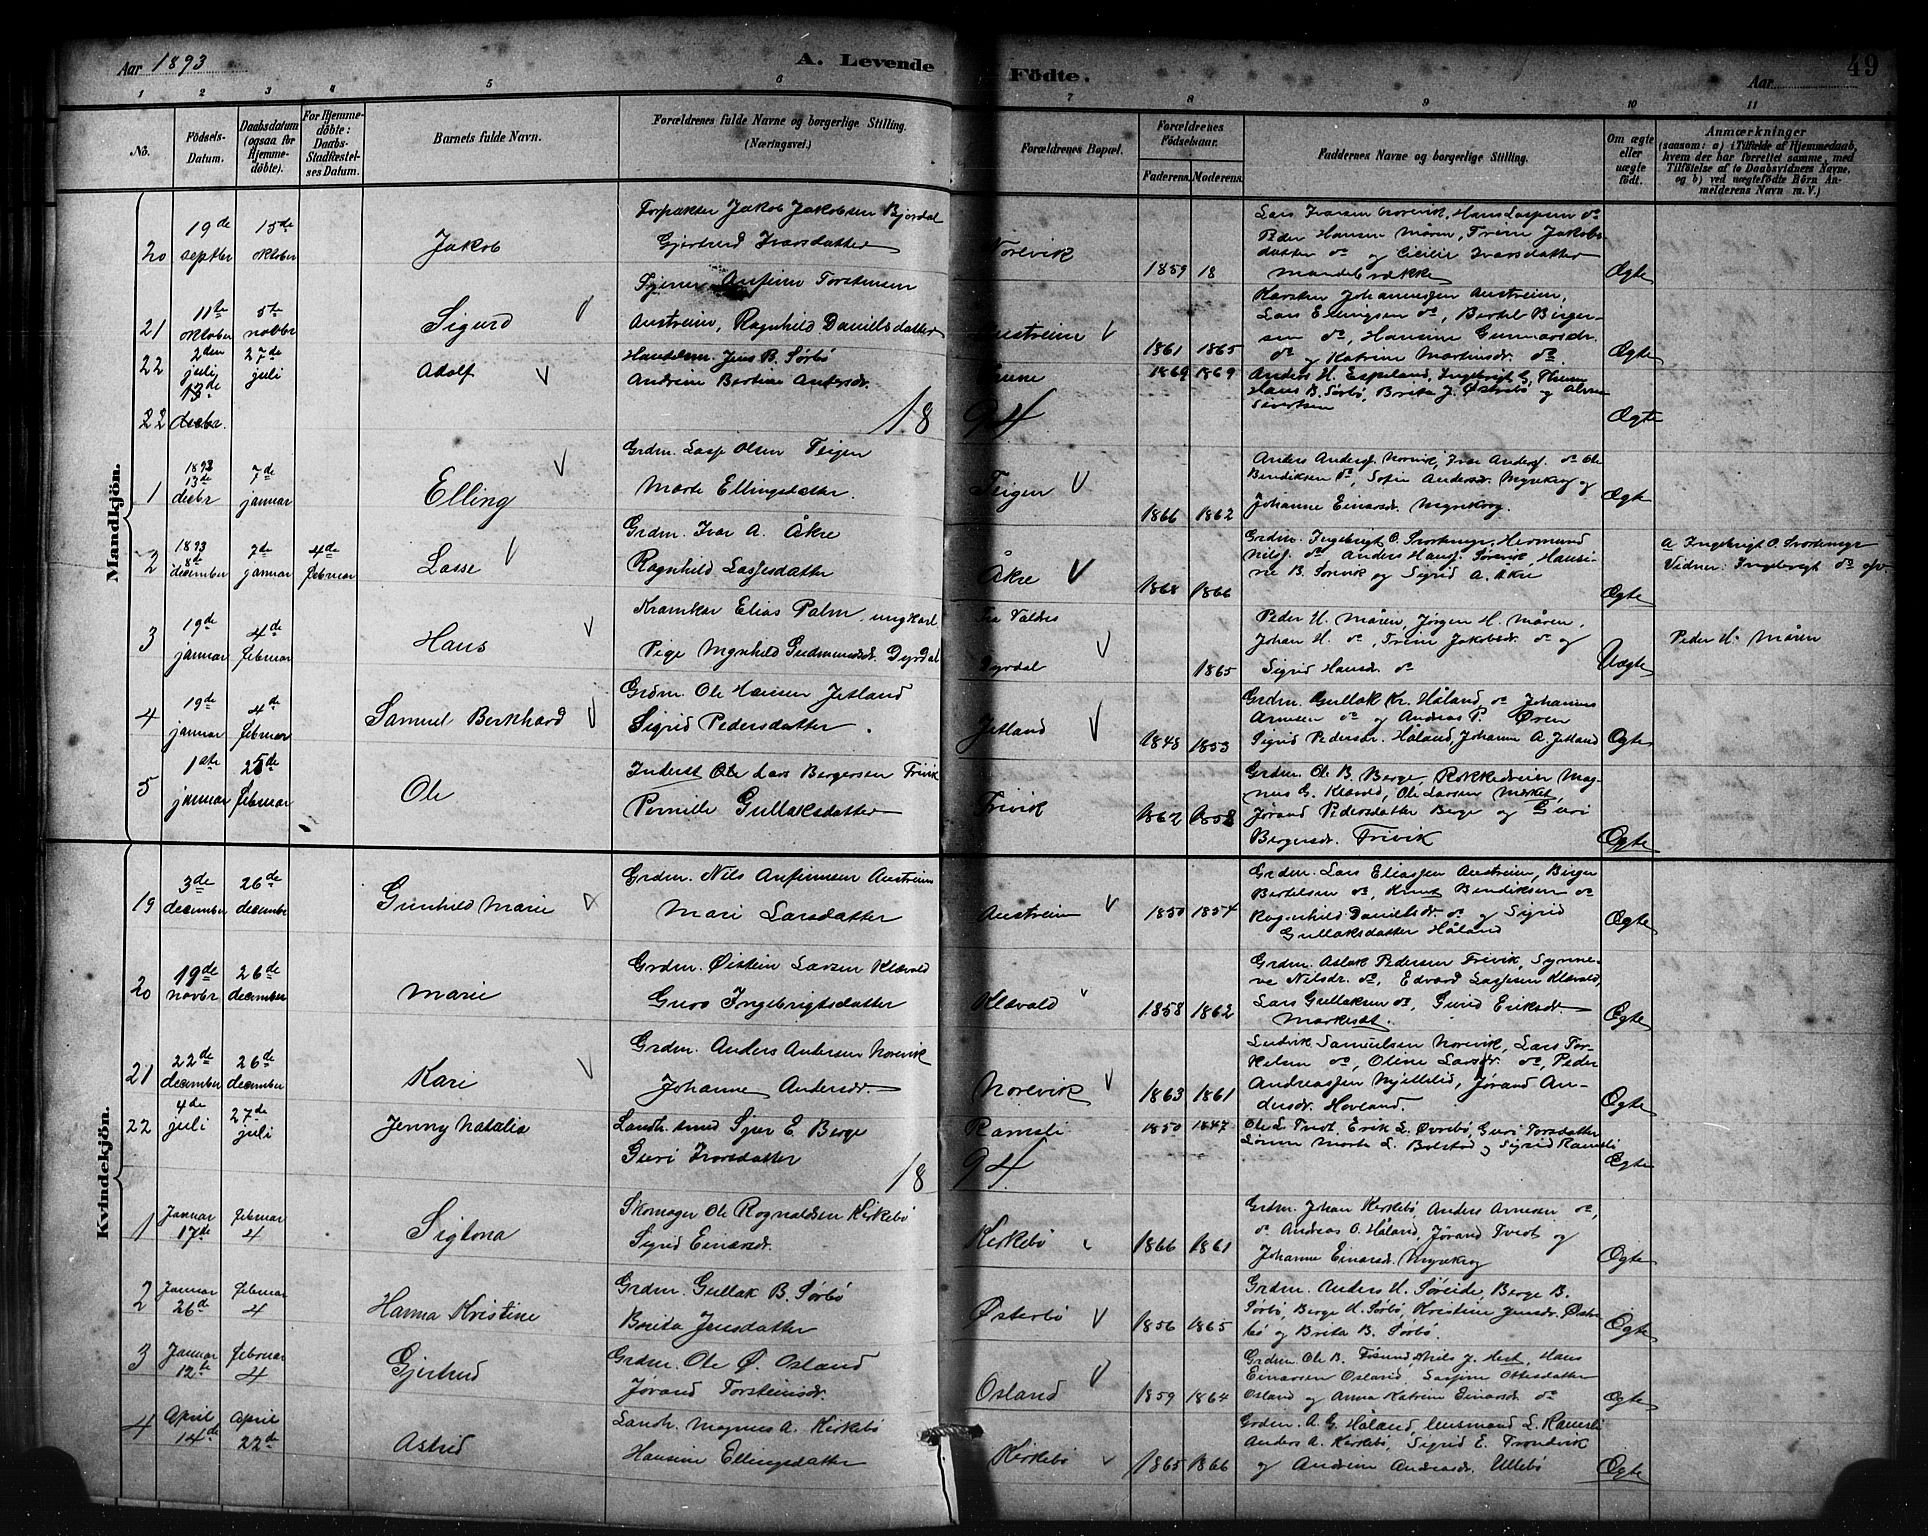 Aar 1893
A. Levende Födte.
Aar
49
1 2 3 4 5 6 7 8 9 10 11
No.
Födsels-Datum.
Daabsdatum (ogsaa for Hjemme-döbte).
For Hjemme-döbte: Daabs-Stadfæstel-ses Datum.
Barnets fulde Navn.
Forældrenes fulde Navne og borgerlige Stilling. (Næringsvei.)
Forældrenes Bopæl.
Forældrenes Födselsaar.
Faderens. Moderens.
Faddernes Navne og borgerlige Stilling.
Om ægte eller uægte födt.
Anmærkninger
(saasom: a) i Tilfælde af Hjemmedaab, hvem der har forrettet samme, med Tilföielse af to Daabsvidners Navne, og b) ved uægtefödte Börn An-melderens Navn m. V.)
Mandkjön.
20 19de septbr 15de oktober Jakob
Forpakter Jakob Jakobsen Bjordal
Gjertrud Ivarsdatter
Norevik 1859 18
Lars Ivarsen Norevik, Hans Lassesen do
Peder Hansen Måren, Trine Jakobs
datter do og Cicilie Ivarsdatter
Ægte
21 11te oktober 5te novbr Sigurd
Anfinn Torsteinsen
Austreim, Ragnhild Danielsdatter
Austreim 1861 1865
Karsten Johannessen Austreim,
Lars Ellingsen do, Bertel Berger-
sen do, Hansine Gunnarsdr.
do og Katrine Martinsdr. do
Ægte
22 2den juli 27de juli Adolf
Handelsm. Jens B. Sörbö
Andrine Bertine Andersdr.
1869 1869
Anders H. Espeland, Ingebrigt G.
Hans B. Sörbö, Brita J. Østrebö og
Sivertsen
Ægte
22 13de decbr.
1894
1 1893 13de decbr 7de januar Elling
Grdm. Lasse Olsen Teigen
Marte Ellingsdatter.
Teigen 1866 1862
Anders Anders. Norevik, Ivar Anders. do Ole
Bendiksen do, Sofie Andersdr. Myrekrog og
Johanne Einarsdr. Myrekrog.
Ægte
2 1893 8de december 7de januar 4de februar Lasse
Grdm. Ivar A. Åkre
Ragnhild Lassesdatter
Åkre 1868 1866
Grdm. Ingebrigt O. Svortemyr, Hermund
Nils. do Anders Hans. Sörevik, Hansi-
ne B. Sörevik og Sigrid A. Åkre
Ægte
a Ingebrigt O. Svortemyr
Vidner: Ingebrigt do
3 19de januar 4de februar Hans
Kramkar Elias Palm, ungkarl
Pige Mgnhild Gudmundsdr. Dyrdal
Fra Valdres
Dyrdal 1865
Peder H. Måren, Jörgen H. Måren,
Johan H. do, Trine Jakobsdr. do og
Sigrid Hansdr. do
Uægte
Peder H. Måren
4 19de januar 4de februar Samuel Bernhard
Grdm. Ole Hansen Jetland
Sigrid Pedersdatter.
Jetland 1848 1853
Grdm. Gullak Kr. Håland, do Johannes
Arnesen do og Andreas P. Øren
Sigrid Pedersdr. Håland, Johanne A. Jetland
Ægte
5 1ste januar 25de februar Ole
Inderst Ole Lars Bergersen Trivik
Pernille Gullaksdatter
Trivik 1862 1858
Grdm. Ole B. Berge, Rokkedreier Mag-
nus G. Klævold, Ole Larsen Market,
Jørand Pedersdatter Berge og Guri
Bergersdr. Trivik
Ægte
Kvindekjön.
19 3de december 26de december Gunhild Marie
Grdm. Nils Anfinnsen Austreim
Mari Larsdatter
Austreim 1850 1854
Grdm. Lars Eliassen Austreim, Birger
Bertelsen do, Knut Bendiksen do
Ragnhild Danielsdr. do og Sigrid
Gullaksdatter Håland
Ægte
20 19de novbr 26de december Marie
Grdm. Øistein Larsen Klævold
Guro Ingebrigtsdatter
Klævold 1858 1862
Grdm. Aslak Pedersen Trivik, Synne-
ve Nilsdr. do, Edvard Lassesen Klævold,
Lars Gullaksen do, Gurid Eriksdr.
Markesæt.
Ægte
21 22de december 26de december Kari
Grdm. Anders Andersen Norevik
Johanne Andersdr.
Norevik 1863 1861
Ludvik Samuelsen Norevik, Lars Tor-
kelsen do, Oline Larsdr. do, Peder
Andreassen Mjellelid, Jørand An-
dersdr. Hovland.
Ægte
22 4de juli 27de juli Jenny Natalia
Landh.smd Sjur E. Berge
Guri Ivarsdatter
Ramsli 1850 1847
Ole L. Tvedt, Erik L. Øvrebö, Guri Torsdatter
Marte L. Bolstad og Sigrid Ramsli
Ægte
1894
1 Januar 17de februar 4 Sigtona
Skomager Ole Rognaldsen Kirkebö
Sigrid Einarsdr.
Kirkebö 1866 1861
Grdm. Johan Kirkebö Anders Arnesen do,
do Andreas O. Håland, Jørand Tvedt og
Johanne Einarsdr. Myrekrog
Ægte
2 Januar 26de februar 4 Hanna Kristine
Grdm. Gullak B. Sörbö
Brita Jensdatter
Østerbö 1856 1865
Grdm. Anders H. Söreide, Berge B.
Sörbö, Berge H. Sörbö, Kristine Jensdr. Øster
bö og Brita B. Sörbö.
Ægte
3 Januar 12te februar 4 Gjertrud
Grdm. Ole Ø. Osland
Jørand Torsteinsdr.
Osland 1859 1864
Grdm. Ole B. Nils J. Hans
Einarsen Osland, Ottesdatter
Osland og Anna Katrine Einarsdr. do
Ægte
4 April 14de April 22de Astrid
Landh. Magnus A. Kirkebö
Hansine Ellingsdatter
Kirkebö 1865 1866
Grdm. A. G. Håland, L. Ramsli
Anders A. Kirkebö, Sigrid E. Trondvik
og Andrine Andreasdr. Ullebö
Ægte